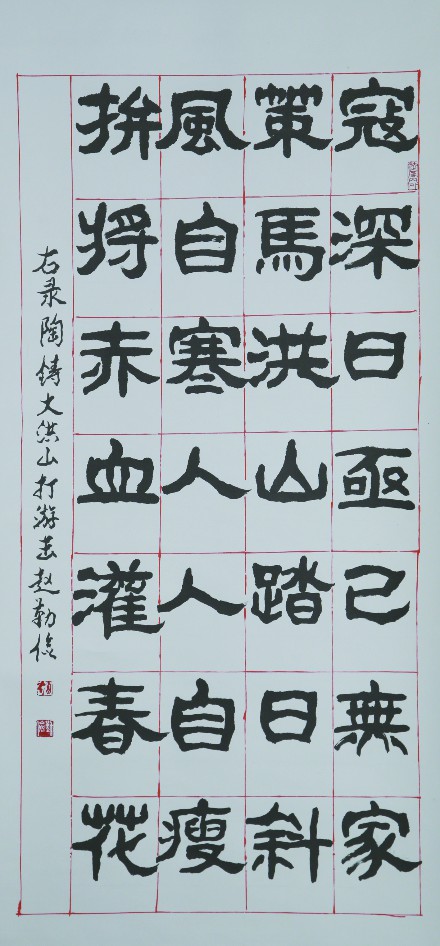 寇深日亟已無家
策馬洪山踏日斜
風自寒人人自瘦
拚將赤血灌春花
右录陶鑄大洪山打游击赵勤俭